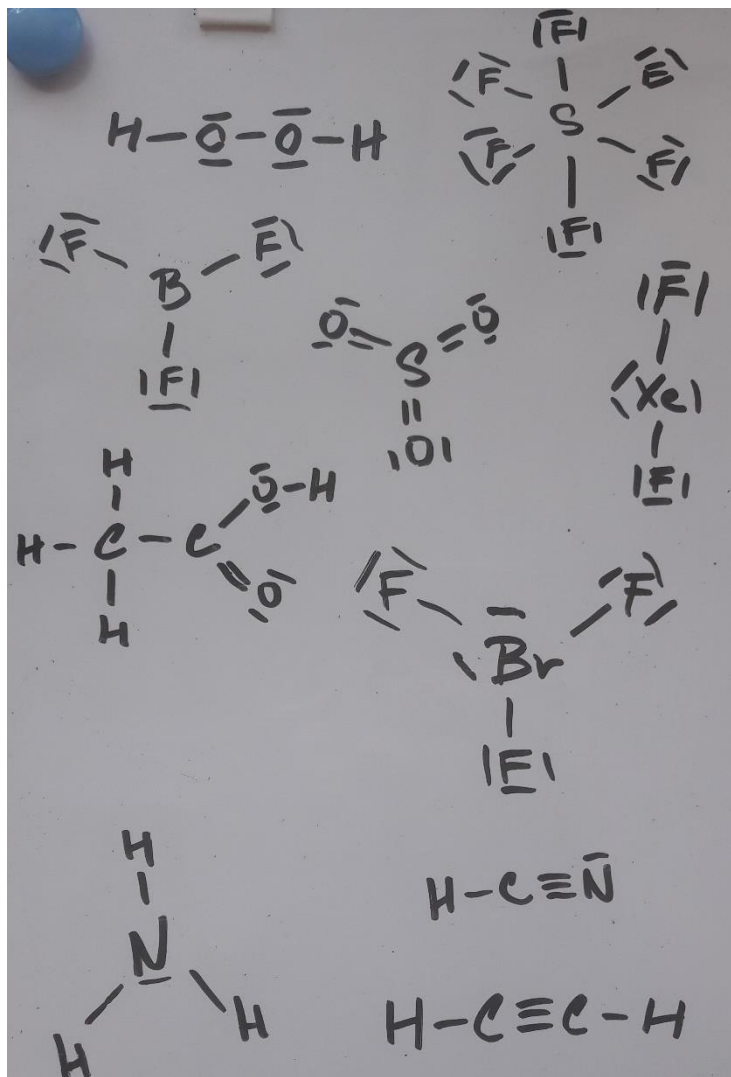 H-O-O-H
F
F F
S
F F
F
F F
B
F
O O
S
O
F
Xe
F
H
O-H
H-C-C
O
H
F F
Br
F
H
N
H H
H-C≡N
H-C≡C-H